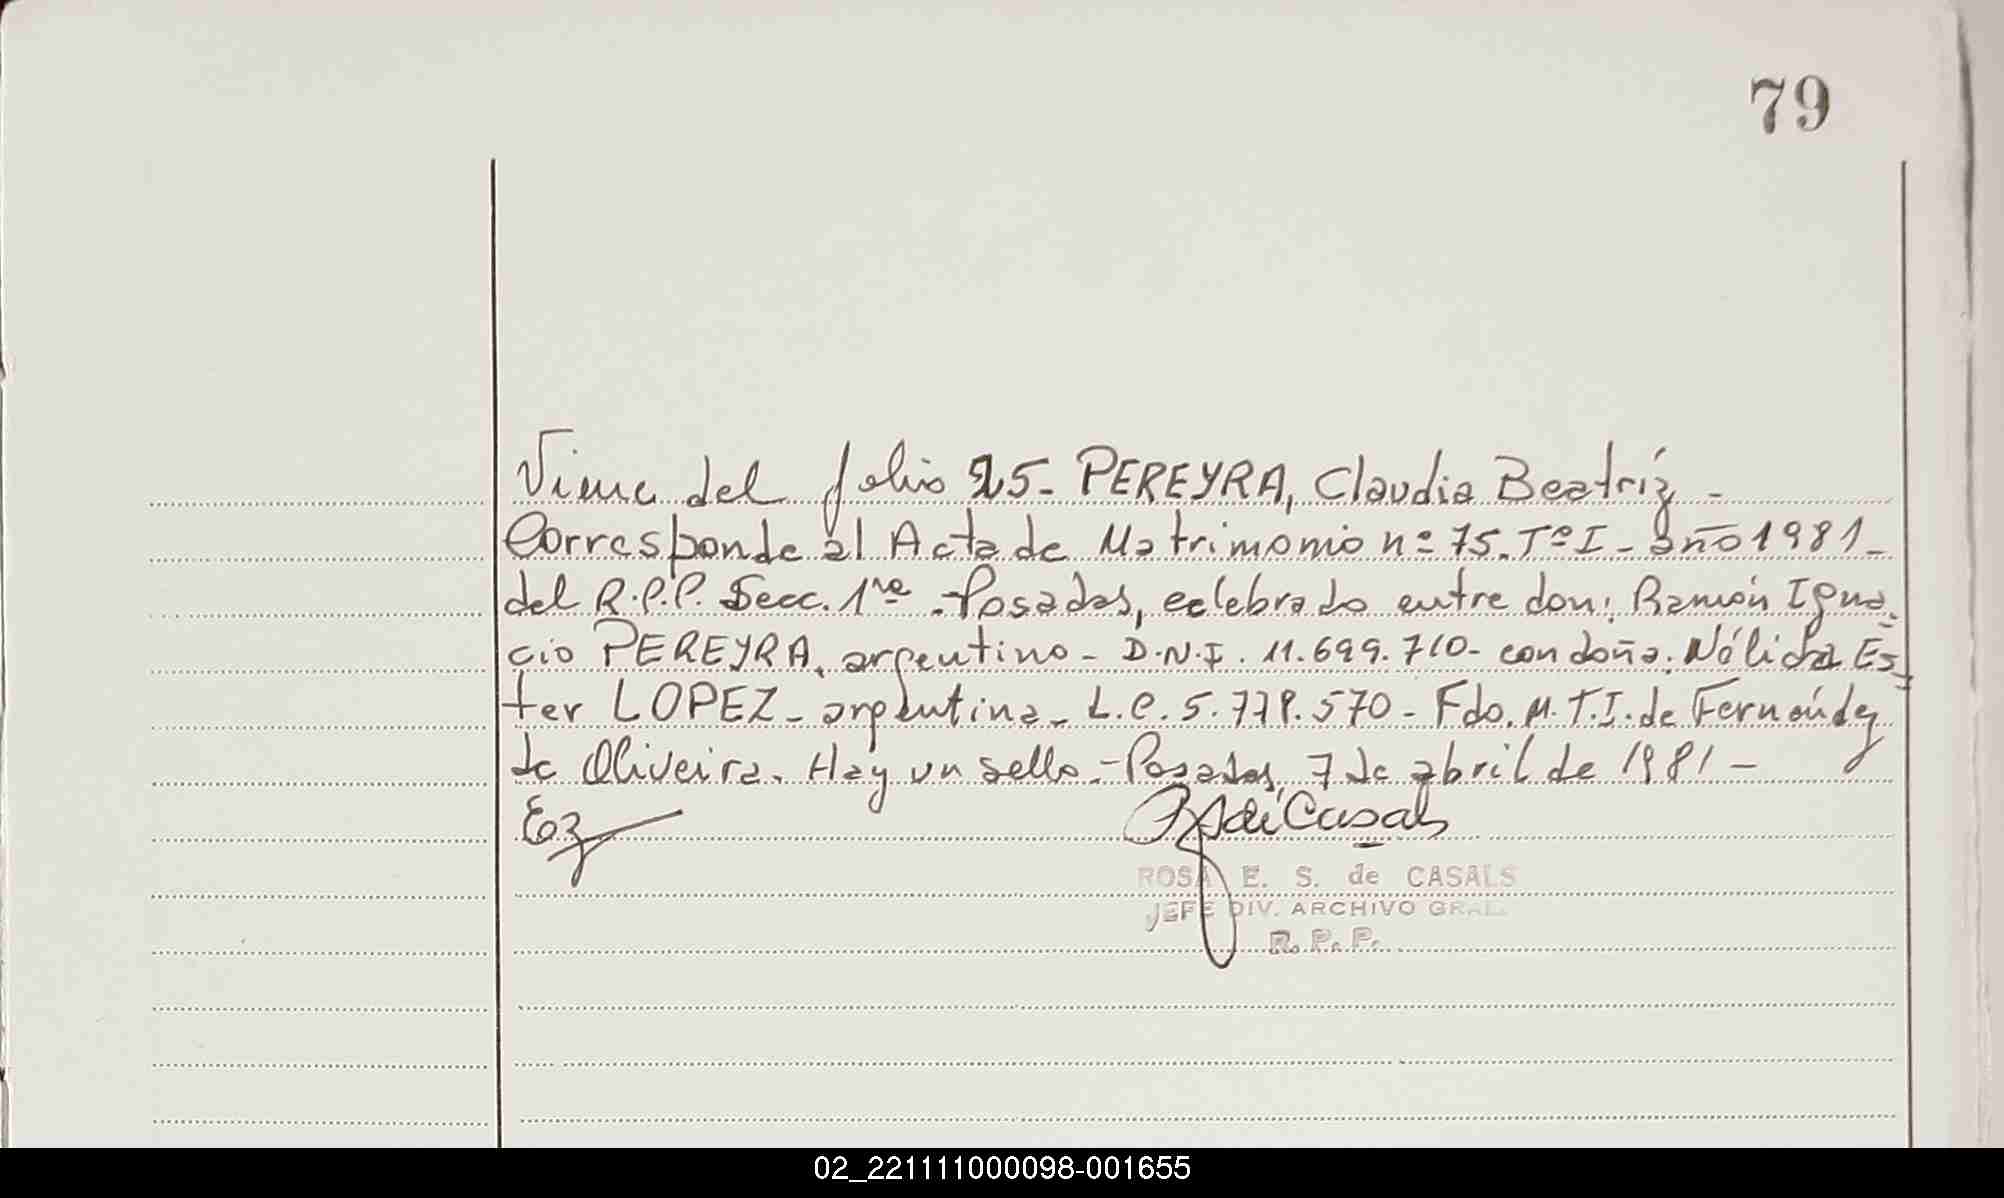 79
Viene del folio 25- PEREYRA, Claudia Beatríz -
Corresponde al Acta de Matrimonio nº 75. Tº I - año 1981-
del R.P.P. Secc. 1ra -Posadas, celebrado entre don: Ramón Igna-
cio PEREYRA, argentino - D.N.I. 11.699.710- con doña: Nélida Es-
ter LOPEZ - argentina - L.C. 5.778.570 - Fdo. M.T.I. de Fernández
de Oliveira. Hay un sello.-Posadas, 7 de abril de 1981 -
ROSA E. S. de CASALS
JEFE DIV. ARCHIVO GRAL.
R. P. P.
02_221111000098-001655